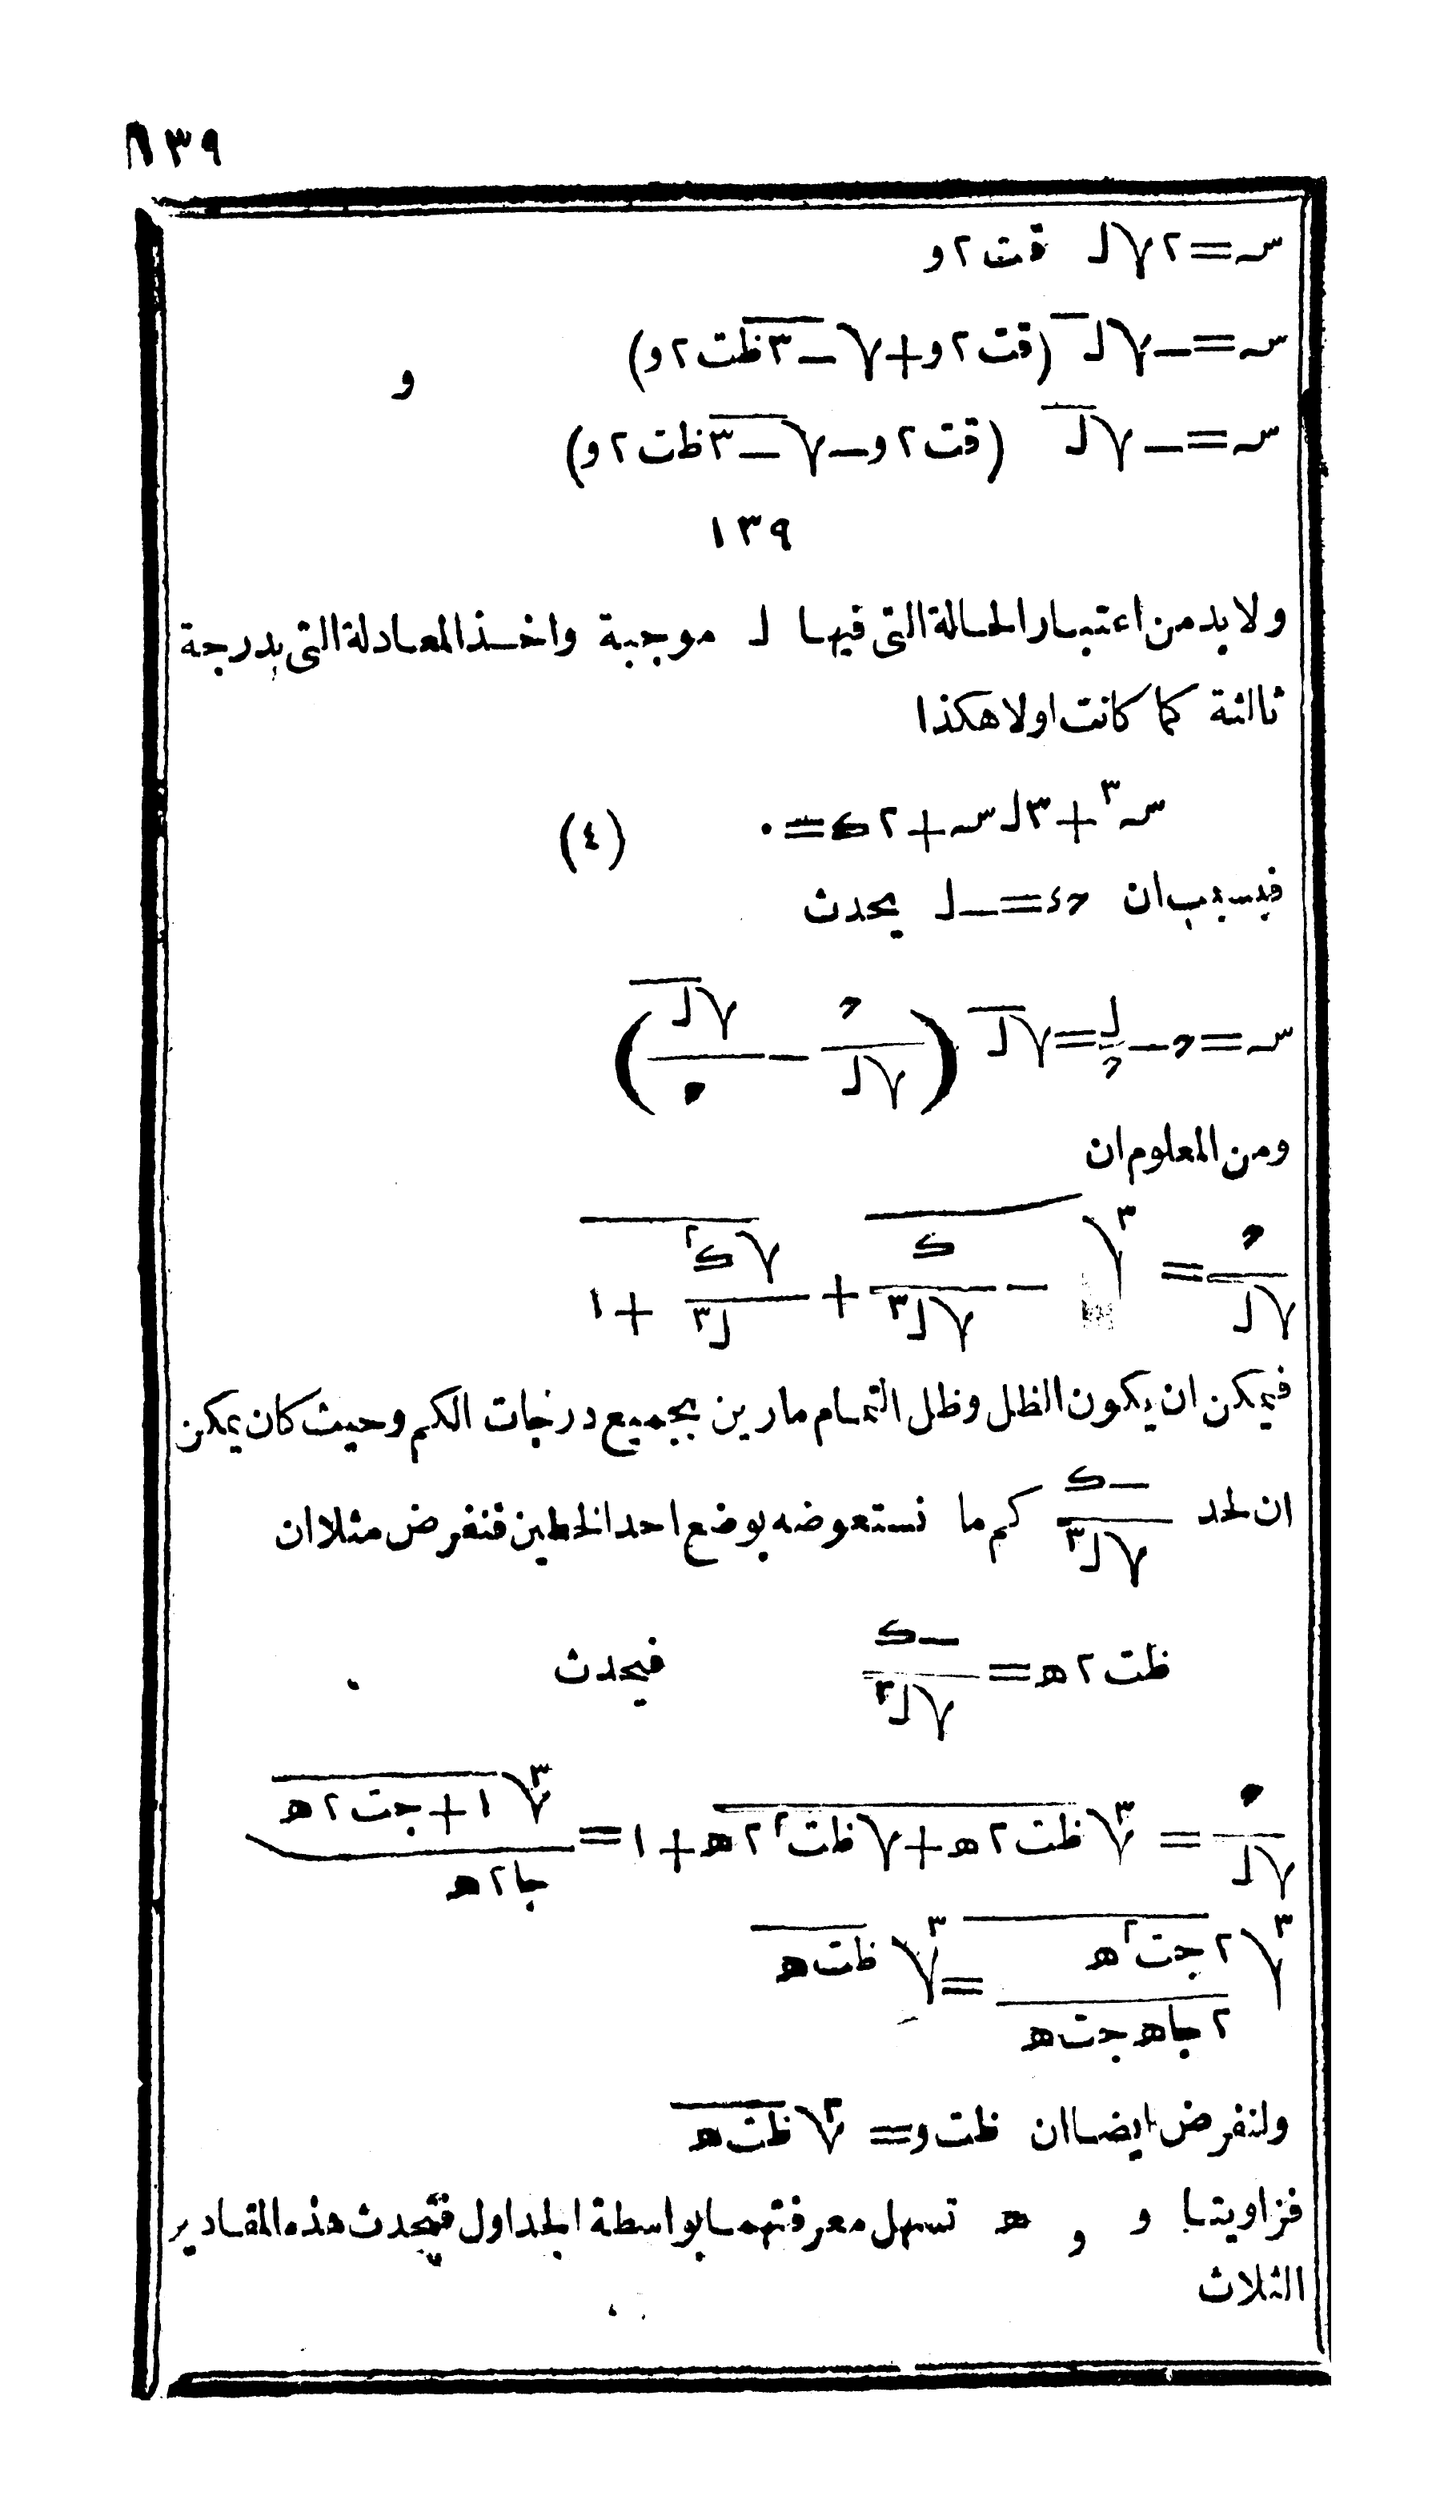 ١٣٩
س=٢√ل قت٢و
س=−√ل (قت٢و+√−٣ظت٢و)
و
س=−√ل (قت٢و−√−٣ظت٢و)
١٣٩
ولا بد من اعتبار الحالة التى فيها ل موجبة واخذ المعادلة التى بدرجة
ثالثة كما كانت اولا هكذا
س٣+٣ل س+٢ك=٠ (٤)
فبسبب ان =−ل يحدث
س=م−ل/م=√ل (م/√ل − √ل/م)
ومن المعلوم ان
م/√ل = ٣√ −ك/√ل٣ + √ك٢/ل٣ +١
فيمكن ان يكون الظل وظل التمام مارين بجميع درجات الكم وحيث كان يمكن
ان لحد −ك/√ل٣ كم ما نستعوضه بوضع احد الخطين فنفرض مثلا ان
ظت٢ه=−ك/√ل٣ فيحدث
م/√ل = ٣√ظت٢ه+√ظت٢ ٢ه+١=٣√١+جت٢ه/جا٢ه
٣√٢جت٢ه/٢جاه جته=٣√ظته
ولنفرض ايضا ان ظت و=٣√ظته
فزاويتا و و ه تسهل معرفتهما بواسطة الجداول فيحدث هذه المقادير
الثلاث